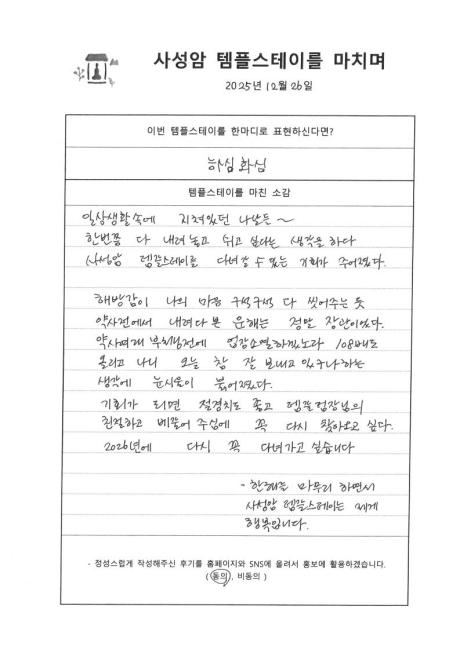 사성암 템플스테이를 마치며
2025년 12월 26일
이번 템플스테이를 한마디로 표현하신다면?
하심 화심
템플스테이를 마친 소감
일상생활속에 지쳐있던 나날들~
한번쯤 다 내려놓고 쉬고 싶다는 생각을 하다
사성암 템플스테이를 다녀갈 수 있는 기회가 주어졌다.
해방감이 나의 마음 구석구석 다 씻어주는 듯
약사전에서 내려다 본 운해는 정말 장관이었다.
약사여래 부처님전에 업장소멸하겠노라 108배도
올리고 나니 오늘 참 잘 보내고 있구나하는
생각에 눈시울이 붉어졌다.
기회가 되면 절경치도 좋고 템플 팀장님의
친절하고 베풀어 주심에 꼭 다시 찾아오고 싶다.
2026년에 다시 꼭 다녀가고 싶습니다
- 한해를 마무리 하면서
사성암 템플스테이는 제게
행복입니다.
- 정성스럽게 작성해주신 후기를 홈페이지와 SNS에 올려서 홍보에 활용하겠습니다.
( 동의, 비동의 )